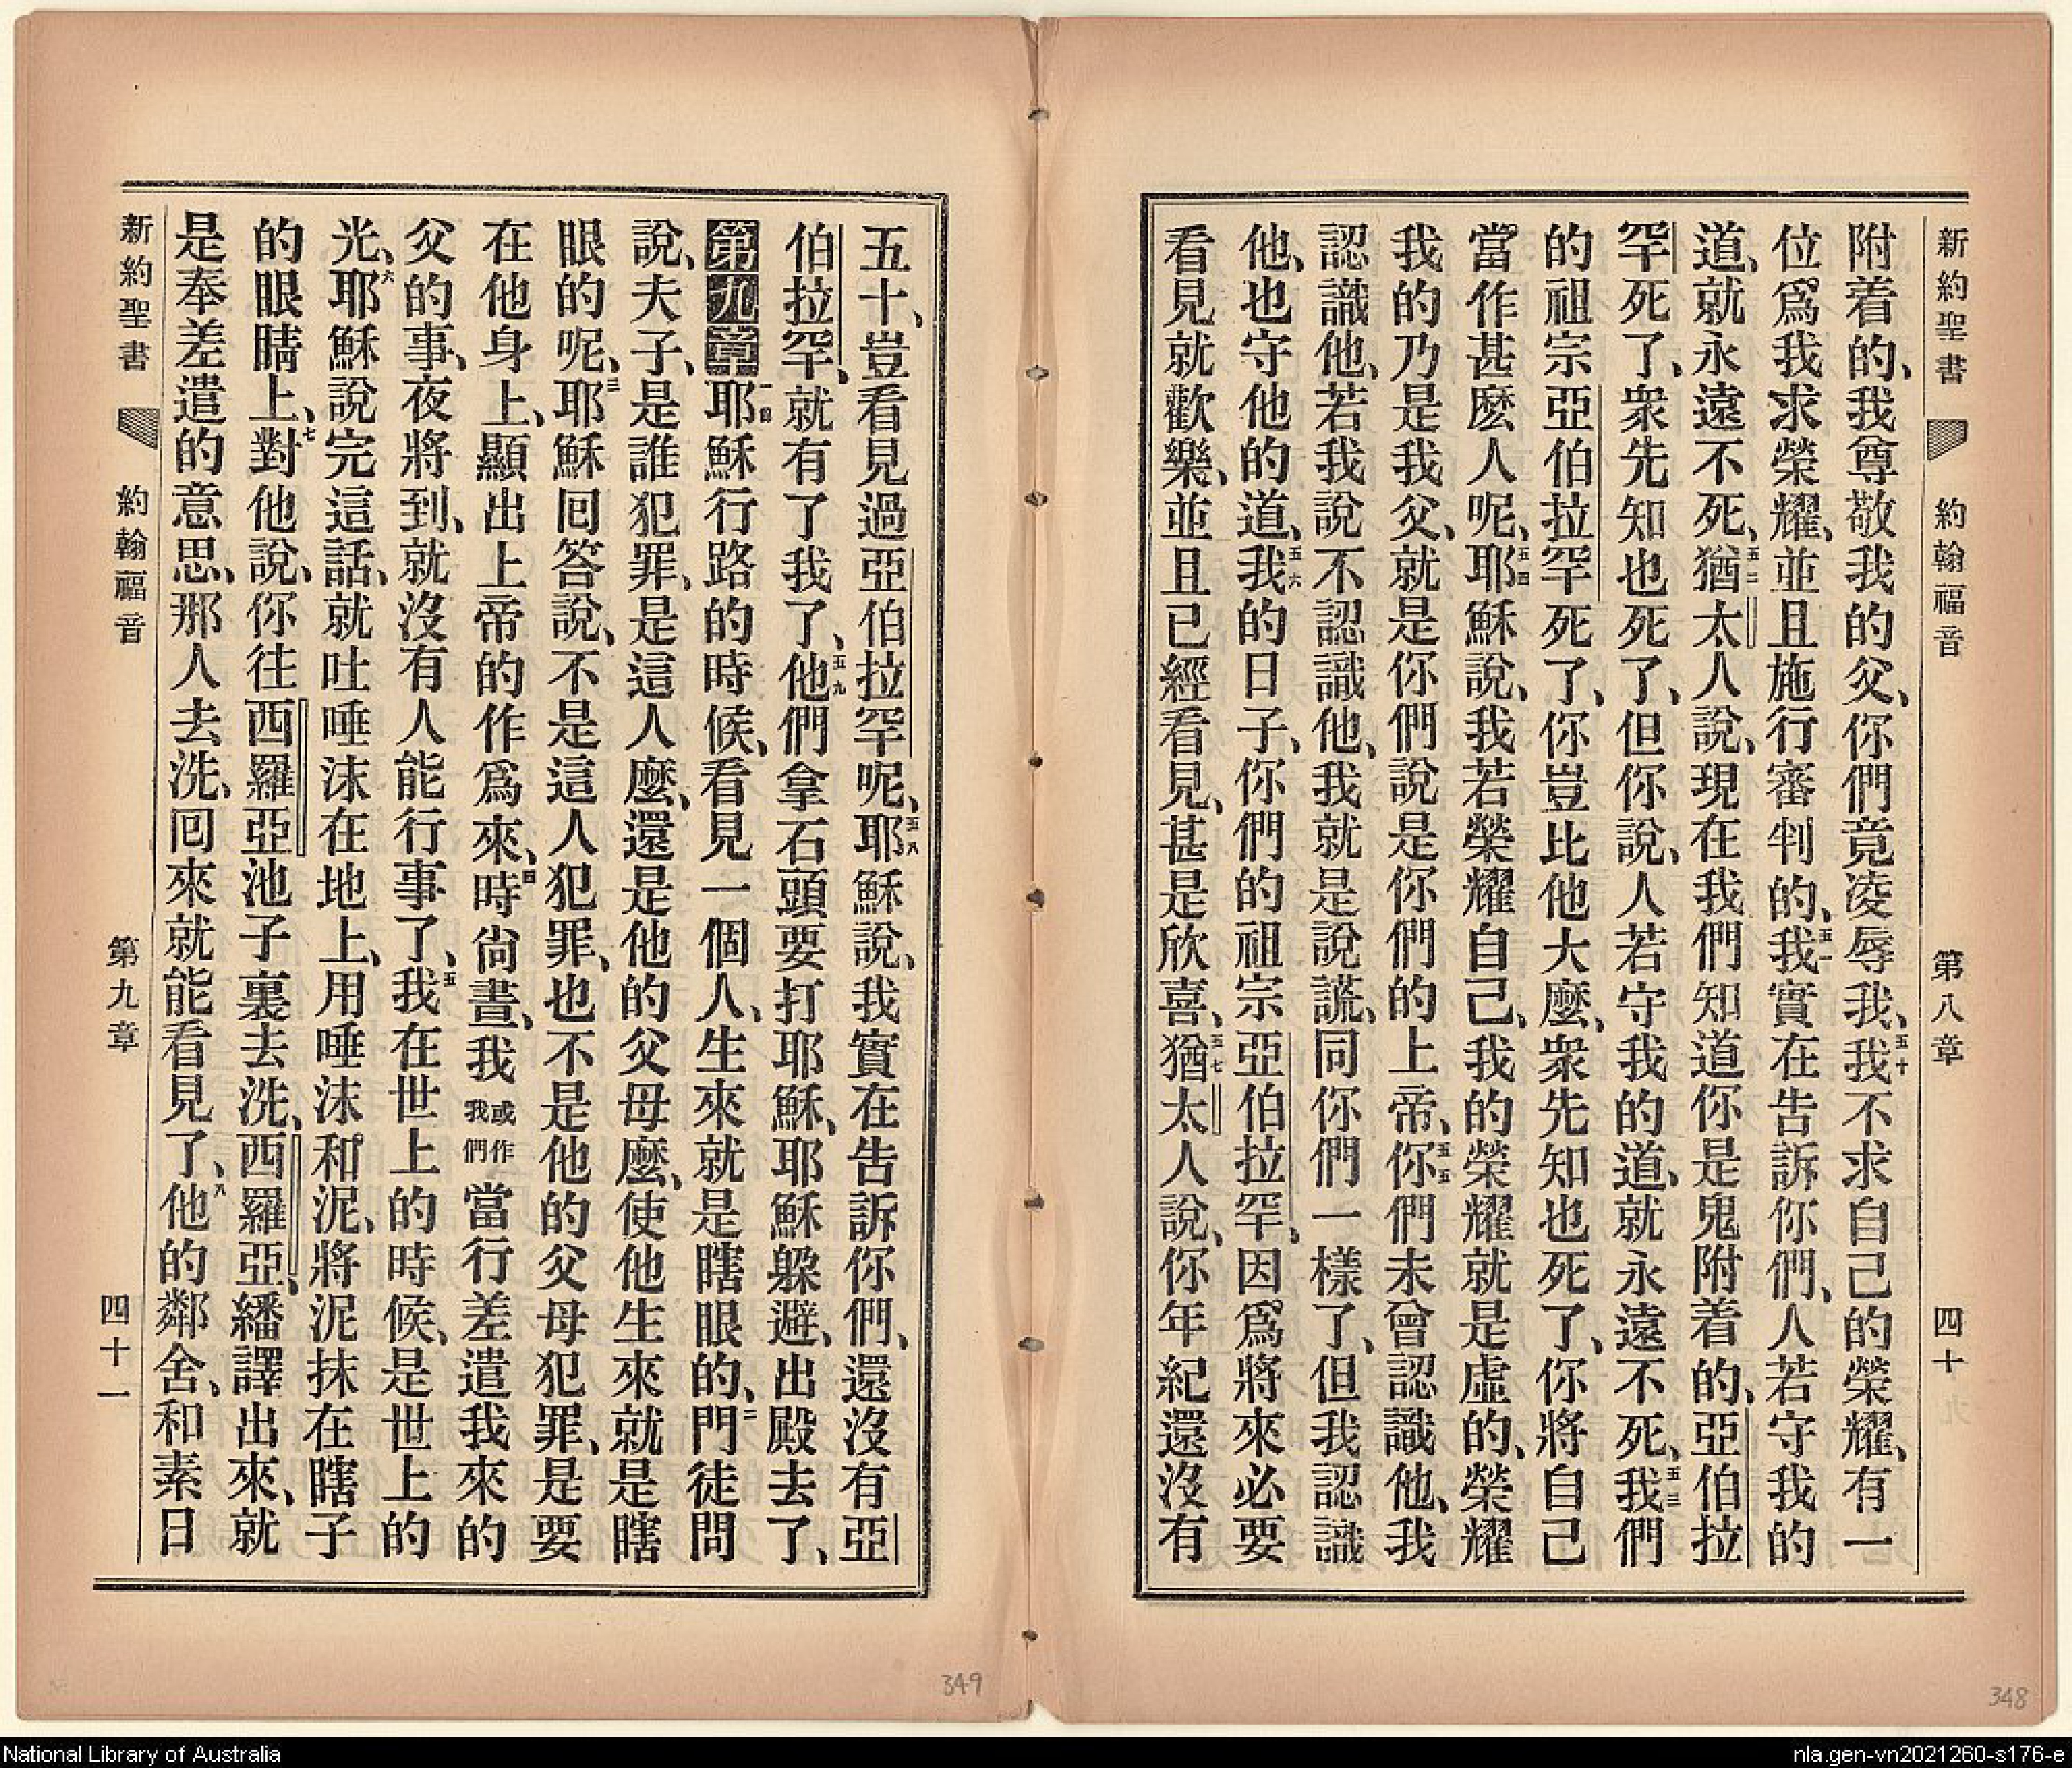 新約聖書 約翰福音 第八章 四十
附着的、我尊敬我的父、你們竟凌辱我、五十我不求自己的榮耀、有一
位爲我求榮耀、並且施行審判的、五一我實在告訴你們、人若守我的
道、就永遠不死、五二猶太人說、現在我們知道你是鬼附着的、亞伯拉
罕死了、衆先知也死了、但你說、人若守我的道、就永遠不死、五三我們
的祖宗亞伯拉罕死了、你豈比他大麼、衆先知也死了、你將自己
當作甚麽人呢、五四耶穌說、我若榮耀自己、我的榮耀就是虛的、榮耀
我的乃是我父、就是你們說是你們的上帝、五五你們未曾認識他、我
認識他、若我說不認識他、我就是說謊、同你們一樣了、但我認識
他、也守他的道、五六我的日子、你們的祖宗亞伯拉罕、因爲將來必要
看見就歡樂、並且已經看見、甚是欣喜、五七猶太人說、你年紀還沒有
五十、豈看見過亞伯拉罕呢、五八耶穌說、我實在告訴你們、還沒有亞
伯拉罕、就有了我了、五九他們拿石頭要打耶穌、耶穌躱避、出殿去了、
第九章一耶穌行路的時候、看見一個人、生來就是瞎眼的、二門徒問
說、夫子、是誰犯罪、是這人麼、還是他的父母麼、使他生來就是瞎
眼的呢、三耶穌囘答說、不是這人犯罪、也不是他的父母犯罪、是要
在他身上、顯出上帝的作爲來、四時尙晝、我或作我們當行差遣我來的
父的事、夜將到、就沒有人能行事了、五我在世上的時候、是世上的
光、六耶穌說完這話、就吐唾沫在地上、用唾沫和泥、將泥抹在瞎子
的眼睛上、七對他說、你往西羅亞池子裏去洗、西羅亞、繙譯出來、就
是奉差遣的意思、那人去洗、囘來就能看見了、八他的鄰舍、和素日
新約聖書 約翰福音 第九章 四十一
349
348
National Library of Australia
nla.gen-vn2021260-s176-e